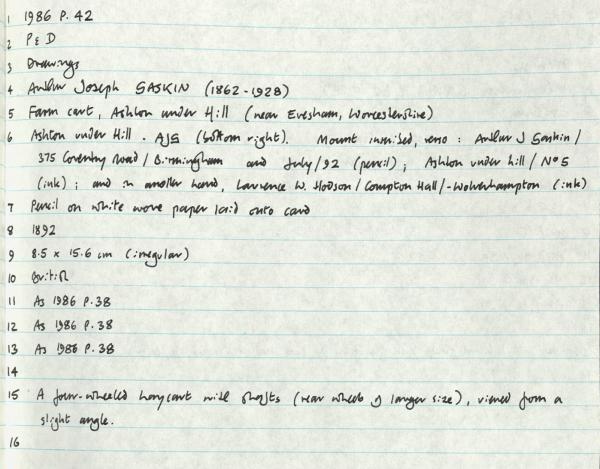 1 1986 P. 42
2 P & D
3 Drawings
4 Arthur Joseph GASKIN (1862-1928)
5 Farm cart, Ashton under Hill (near Evesham, Worcestershire)
6 Ashton under Hill. AJG (bottom right). Mount inscribed, verso: Arthur J Gaskin/
375 Coventry Road/Birmingham and July/92 (pencil); Ashton under hill/No 5
(ink); and in another hand, Laurence W. Hodson/Compton Hall/-Wolverhampton (ink)
7 Pencil on white wove paper laid onto card
8 1892
9 8.5 x 15.6 cm (irregular)
10 British
11 As 1986 P.38
12 As 1986 P.38
13 As 1986 P.38
14
15 A four-wheeled haycart with shafts (rear wheels of larger size), viewed from a
slight angle.
16